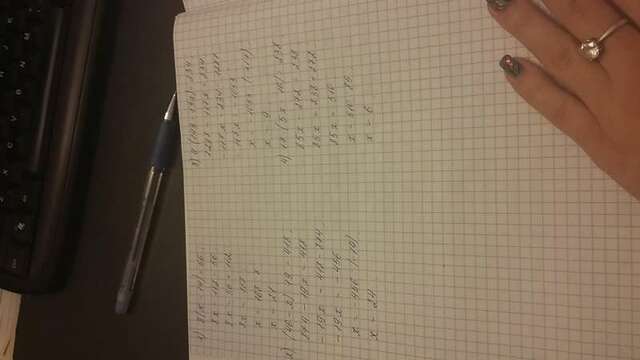 1) 8(x - 14) = 56;
8x - 112 = 56
8x = 56 + 112
8x = 168
x = 168 : 8
x = 21
2) (46 - x) · 19 = 418;
874 - 19x = 418
- 19x = 418 - 874
- 19x = - 456
x = - 456 : (-19)
x = 24
3) 9 (143 - 13x) = 234;
1287 - 117x = 234;
- 117x = 234 - 1287
- 117x = - 1053
x = - 1053 : (-117)
x = 9
4) 17 (5x - 16) = 238
85x - 272 = 238
85x = 238 + 272
85x = 510
x = 510 : 85
x = 6